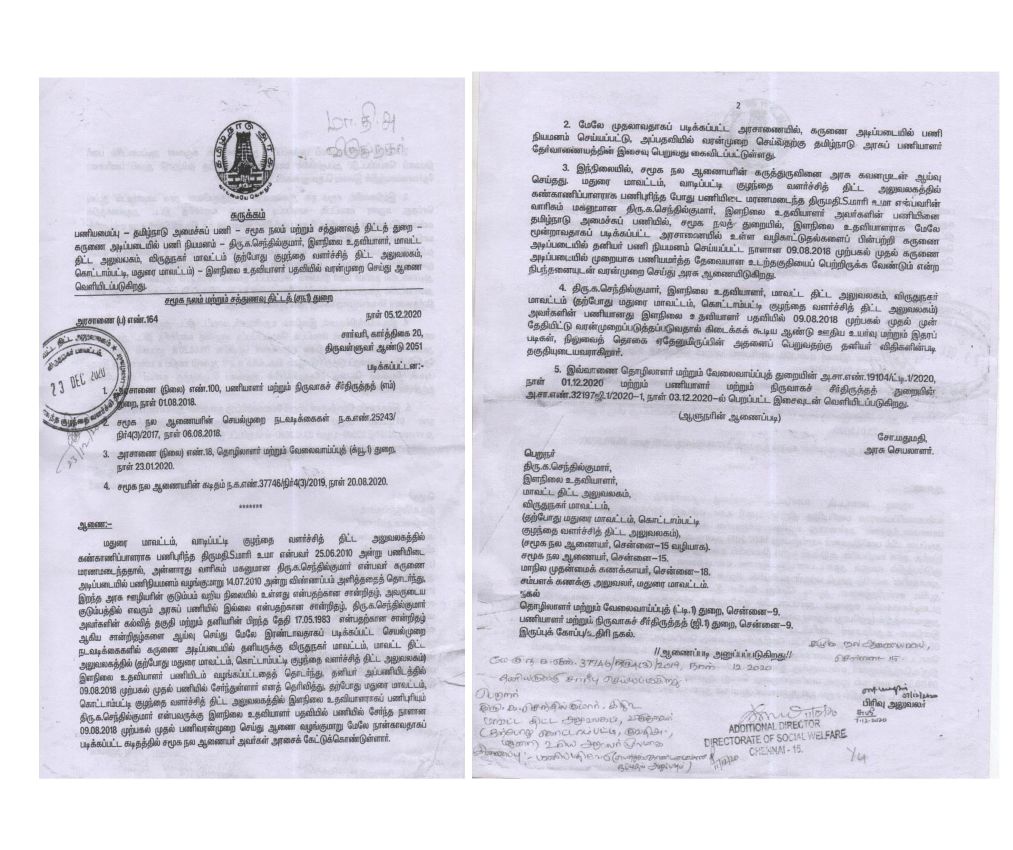 மா.தி.அ
விருதுநகர்
தமிழ்நாடு அரசு
வாய்மையே வெல்லும்
சுருக்கம்
பணியமைப்பு – தமிழ்நாடு அமைச்சுப் பணி – சமூக நலம் மற்றும் சத்துணவுத் திட்டத் துறை –
கருணை அடிப்படையில் பணி நியமனம் – திரு.க.செந்தில்குமார், இளநிலை உதவியாளர், மாவட்ட
திட்ட அலுவலகம், விருதுநகர் மாவட்டம் (தற்போது குழந்தை வளர்ச்சித் திட்ட அலுவலகம்,
கொட்டாம்பட்டி, மதுரை மாவட்டம்) – இளநிலை உதவியாளர் பதவியில் வரன்முறை செய்து ஆணை
வெளியிடப்படுகிறது.
சமூக நலம் மற்றும் சத்துணவுத் திட்டத் (சந1) துறை
அரசாணை (ப) எண்.164
நாள் 05.12.2020
சார்வரி, கார்த்திகை 20,
திருவள்ளுவர் ஆண்டு 2051
படிக்கப்பட்டன:-
23 DEC 2020
1. அரசாணை (நிலை) எண்.100, பணியாளர் மற்றும் நிருவாகச் சீர்திருத்தத் (எம்)
துறை, நாள் 01.08.2018.
2. சமூக நல ஆணையரின் செயல்முறை நடவடிக்கைகள் ந.க.எண்.25243/
நிர்4(3)/2017, நாள் 06.08.2018.
3. அரசாணை (நிலை) எண்.18, தொழிலாளர் மற்றும் வேலைவாய்ப்புத் (க்யூ.1) துறை,
நாள் 23.01.2020.
4. சமூக நல ஆணையரின் கடிதம் ந.க.எண்.37746/நிர்4(3)/2019, நாள் 20.08.2020.
*******
ஆணை:–
மதுரை மாவட்டம், வாடிப்பட்டி குழந்தை வளர்ச்சித் திட்ட அலுவலகத்தில்
கண்காணிப்பாளராக பணிபுரிந்த திருமதி.S.மாரி உமா என்பவர் 25.06.2010 அன்று பணியிடை
மரணமடைந்ததால், அன்னாரது வாரிசு மகனுமான திரு.க.செந்தில்குமார் என்பவர் கருணை
அடிப்படையில் பணிநியமனம் வழங்குமாறு 14.07.2010 அன்று விண்ணப்பம் அளித்ததைத் தொடர்ந்து,
இறந்த அரசு ஊழியரின் குடும்பம் வறிய நிலையில் உள்ளது என்பதற்கான சான்றிதழ், அவருடைய
குடும்பத்தில் எவரும் அரசுப் பணியில் இல்லை என்பதற்கான சான்றிதழ், திரு.க.செந்தில்குமார்
அவர்களின் கல்வித் தகுதி மற்றும் தனியரின் பிறந்த தேதி 17.05.1983 என்பதற்கான சான்றிதழ்
ஆகிய சான்றிதழ்களை ஆய்வு செய்து மேலே இரண்டாவதாகப் படிக்கப்பட்ட செயல்முறை
நடவடிக்கைகளில் கருணை அடிப்படையில் தனியருக்கு விருதுநகர் மாவட்டம், மாவட்ட திட்ட
அலுவலகத்தில் (தற்போது மதுரை மாவட்டம், கொட்டாம்பட்டி, குழந்தை வளர்ச்சித் திட்ட அலுவலகம்)
இளநிலை உதவியாளர் பணியிடம் வழங்கப்பட்டதைத் தொடர்ந்து, தனியர் அப்பணியிடத்தில்
09.08.2018 முற்பகல் முதல் பணியில் சேர்ந்துள்ளார் எனத் தெரிவித்து, தற்போது மதுரை மாவட்டம்,
கொட்டாம்பட்டி, குழந்தை வளர்ச்சித் திட்ட அலுவலகத்தில் இளநிலை உதவியாளராகப் பணிபுரியும்
திரு.க.செந்தில்குமார் என்பவருக்கு இளநிலை உதவியாளர் பதவியில் பணியில் சேர்ந்த நாளான
09.08.2018 முற்பகல் முதல் பணிவரன்முறை செய்து ஆணை வழங்குமாறு மேலே நான்காவதாகப்
படிக்கப்பட்ட கடிதத்தில் சமூக நல ஆணையர் அவர்கள் அரசைக் கேட்டுக்கொண்டுள்ளார்.
2
2. மேலே முதலாவதாகப் படிக்கப்பட்ட அரசாணையில், கருணை அடிப்படையில் பணி
நியமனம் செய்யப்பட்டு, அப்பதவியில் வரன்முறை செய்வதற்கு தமிழ்நாடு அரசுப் பணியாளர்
தேர்வாணையத்தின் இசைவு பெறுவது கைவிடப்பட்டுள்ளது.
3. இந்நிலையில், சமூக நல ஆணையரின் கருத்துருவினை அரசு கவனமுடன் ஆய்வு
செய்தது. மதுரை மாவட்டம், வாடிப்பட்டி குழந்தை வளர்ச்சித் திட்ட அலுவலகத்தில்
கண்காணிப்பாளராக பணிபுரிந்த போது பணியிடை மரணமடைந்த திருமதி.S.மாரி உமா என்பவரின்
வாரிசும் மகனுமான திரு.க.செந்தில்குமார், இளநிலை உதவியாளர் அவர்களின் பணியினை
தமிழ்நாடு அமைச்சுப் பணியில், சமூக நலத் துறையில், இளநிலை உதவியாளராக மேலே
மூன்றாவதாகப் படிக்கப்பட்ட அரசாணையில் உள்ள வழிகாட்டுதல்களைப் பின்பற்றி கருணை
அடிப்படையில் தனியர் பணி நியமனம் செய்யப்பட்ட நாளான 09.08.2018 முற்பகல் முதல் கருணை
அடிப்படையில் முறையாக பணியமர்த்த தேவையான உடற்தகுதியைப் பெற்றிருக்க வேண்டும் என்ற
நிபந்தனையுடன் வரன்முறை செய்து அரசு ஆணையிடுகிறது.
4. திரு.க.செந்தில்குமார், இளநிலை உதவியாளர், மாவட்ட திட்ட அலுவலகம், விருதுநகர்
மாவட்டம் (தற்போது மதுரை மாவட்டம், கொட்டாம்பட்டி குழந்தை வளர்ச்சித் திட்ட அலுவலகம்)
அவர்களின் பணியினானது இளநிலை உதவியாளர் பதவியில் 09.08.2018 முற்பகல் முதல் முன்
தேதியிட்டு வரன்முறைப்படுத்தப்படுவதால் கிடைக்கக் கூடிய ஆண்டு ஊதிய உயர்வு மற்றும் இதரப்
படிகள், நிலுவைத் தொகை ஏதேனுமிருப்பின் அதனைப் பெறுவதற்கு தனியர் விதிகளின்படி
தகுதியுடையவராகிறார்.
5. இவ்வாணை தொழிலாளர் மற்றும் வேலைவாய்ப்புத் துறையின் அ.சா.எண்.19104/ட்டி.1/2020,
நாள் 01.12.2020 மற்றும் பணியாளர் மற்றும் நிருவாகச் சீர்திருத்தத் துறையின்
அ.சா.எண்.32197ஜி.1/2020–1, நாள் 03.12.2020–ல் பெறப்பட்ட இசைவுடன் வெளியிடப்படுகிறது.
(ஆளுநரின் ஆணைப்படி)
சோ.மதுமதி,
அரசு செயலாளர்.
பெறுநர்
திரு.க.செந்தில்குமார்,
இளநிலை உதவியாளர்,
மாவட்ட திட்ட அலுவலகம்,
விருதுநகர் மாவட்டம்,
(தற்போது மதுரை மாவட்டம், கொட்டாம்பட்டி
குழந்தை வளர்ச்சித் திட்ட அலுவலகம்),
(சமூக நல ஆணையர், சென்னை–15 வழியாக).
சமூக நல ஆணையர், சென்னை–15.
மாநில முதன்மைக் கணக்காயர், சென்னை–18.
சம்பளக் கணக்கு அலுவலர், மதுரை மாவட்டம்.
நகல்
தொழிலாளர் மற்றும் வேலைவாய்ப்புத் (ட்டி.1) துறை, சென்னை–9.
பணியாளர் மற்றும் நிருவாகச் சீர்திருத்தத் (ஜி.1) துறை, சென்னை–9.
இருப்புக் கோப்பு/உதிரி நகல்.
//ஆணைப்படி அனுப்பப்படுகிறது//
சென்னை-15
பெறுநர்
பிரிவு அலுவலர்
ADDITIONAL DIRECTOR
DIRECTORATE OF SOCIAL WELFARE
CHENNAI - 15.